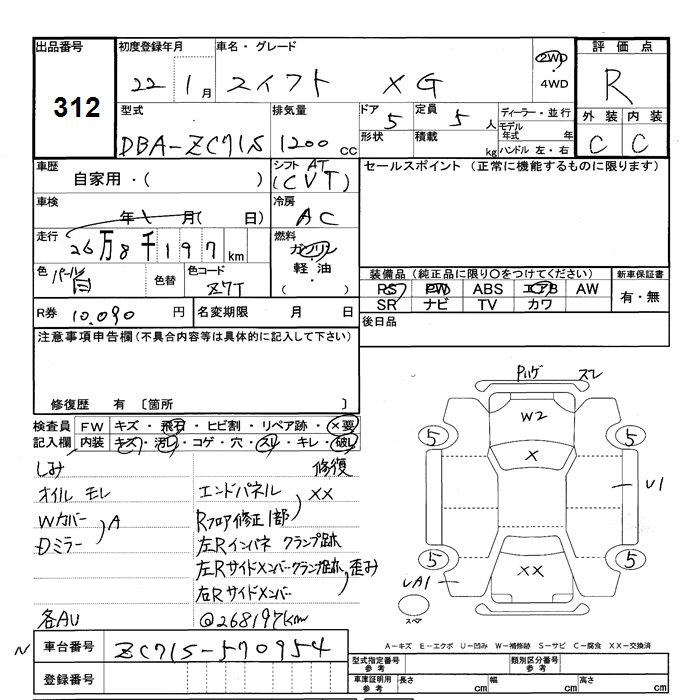 出品番号 初度登録年月 車名・グレード 評価点
312 22 1月 スイフト XG 2WD・4WD R
型式 排気量 ドア 定員 ディーラー・並行 外装 内装
DBA-ZC71S 1200cc 5 5人 モデル年式 年 C C
形状 積載 kg ハンドル 左・右
車歴 シフト AT セールスポイント (正常に機能するものに限ります)
自家用・( ) (CVT)
車検 冷房
年 月( 日) AC
走行 燃料
26万8千197km ガソリン・軽油・( )
色 パール白 色替 色コード Z7T
装備品(純正品に限り○をつけてください) 新車保証書
PS PW ABS エアB AW 有・無
SR ナビ TV カワ
R券 10,090円 名変期限 月 日 後日品
注意事項申告欄(不具合内容等は具体的に記入して下さい)
修復歴 有 〔箇所 〕
検査員 FW キズ・飛石・ヒビ割・リペア跡・×要
記入欄 内装 キズ・汚レ・コゲ・穴・スレ・キレ・破レ
しみ 修復
オイル モレ エンドパネル XX
Wカバー A Rフロア修正1部
Dミラー 左Rインパネ クランプ跡
左Rサイドメンバークランプ跡、歪み
右Rサイドメンバー
各AU @268197km
N 車台番号 ZC71S-570954
登録番号
バンパ スレ
W2
5 5
X
U1
5 5
XX
UA1
スペア
A-キズ E-エクボ U-凹み W-補修跡 S-サビ C-腐食 XX-交換済
型式指定番号 参考 類別区分番号 参考
車庫証明用 参考 長さ cm 幅 cm 高さ cm